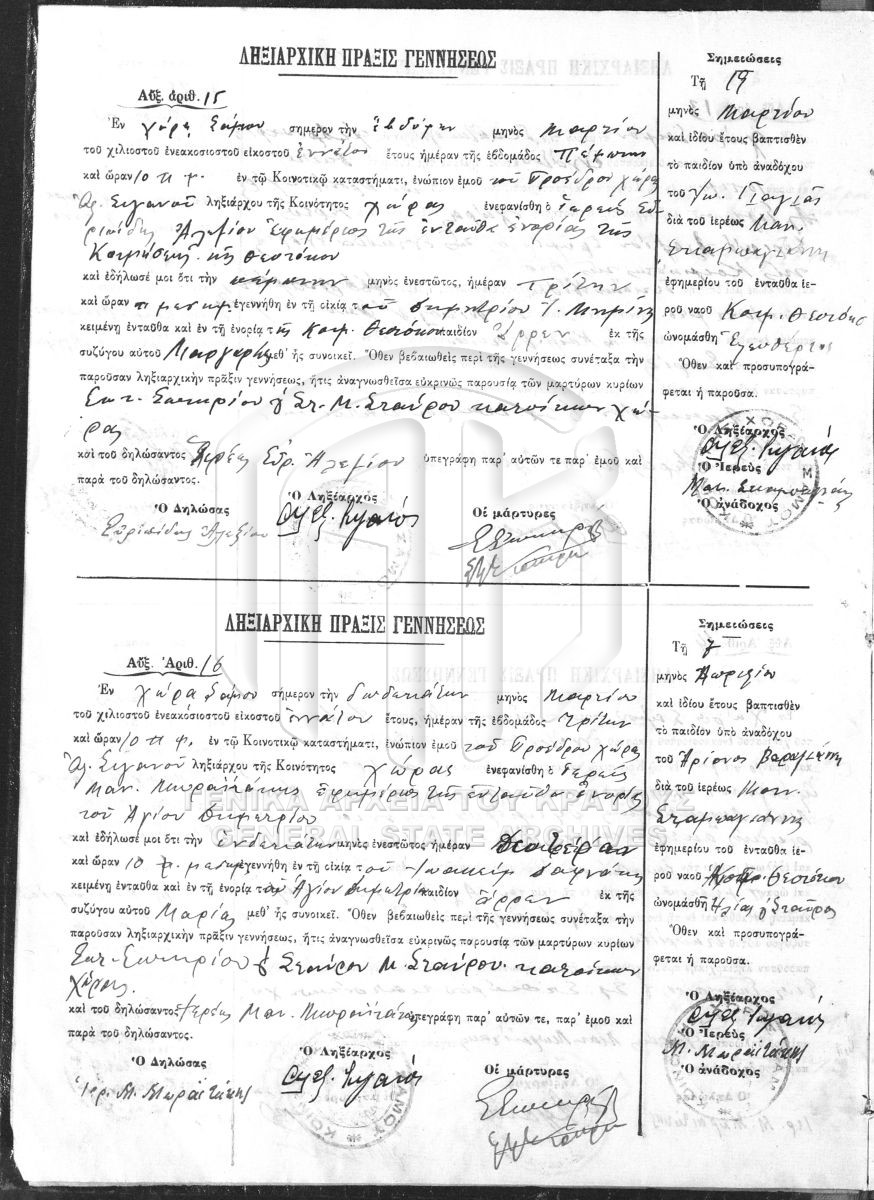 ΛΗΞΙΑΡΧΙΚΗ ΠΡΑΞΙΣ ΓΕΝΝΗΣΕΩΣ
Αὔξ. ἀριθ. 15
Ἐν χώρᾳ Σάμου σήμερον τὴν ἑβδόμην μηνὸς Μαρτίου
τοῦ χιλιοστοῦ ἐνεακοσιοστοῦ εἰκοστοῦ ἐννάτου ἔτους ἡμέραν τῆς ἑβδομάδος Πέμπτην
καὶ ὥραν 10 π.μ. ἐν τῷ Κοινοτικῷ καταστήματι, ἐνώπιον ἐμοῦ τοῦ Προέδρου χώρας
Ἀλ. Σιγανοῦ ληξιάρχου τῆς Κοινότητος χώρας ἐνεφανίσθη ὁ ἱερεὺς Εὐ-
ριπίδης Ἀλεξίου ἐφημέριος τῆς ἐνταῦθα ἐνορίας τῆς
Κοιμήσεως τῆς Θεοτόκου
καὶ ἐδήλωσέ μοι ὅτι τὴν πέμπτην μηνὸς ἐνεστῶτος, ἡμέραν Τρίτην
καὶ ὥραν μεσημ. ἐγεννήθη ἐν τῇ οἰκίᾳ τοῦ Δημητρίου
κειμένῃ ἐνταῦθα καὶ ἐν τῇ ἐνορίᾳ τῆς Κοιμ. Θεοτόκου παιδίον ἄρρεν ἐκ τῆς
συζύγου αὐτοῦ Μαργαρής μεθ᾽ ἧς συνοικεῖ. Ὅθεν βεβαιωθεὶς περὶ τῆς γεννήσεως συνέταξα τὴν
παροῦσαν ληξιαρχικὴν πρᾶξιν γεννήσεως, ἥτις ἀναγνωσθεῖσα εὐκρινῶς παρουσίᾳ τῶν μαρτύρων κυρίων
Σωτηρίου & Στ. Μ. Σταύρου κατοίκων χώ-
ρας
καὶ τοῦ δηλώσαντος Ἱερέως Εὐρ. Ἀλεξίου ὑπεγράφη παρ᾽ αὐτῶν τε παρ᾽ ἐμοῦ καὶ
παρὰ τοῦ δηλώσαντος.
Ὁ Δηλώσας Ὁ Ληξίαρχος Οἱ μάρτυρες
Εὐριπίδης Ἀλεξίου Ἀλεξ. Σιγανός
Σημειώσεις
Τῇ 19
μηνὸς Μαρτίου
καὶ ἰδίου ἔτους βαπτισθὲν
τὸ παιδίον ὑπὸ ἀναδόχου
τοῦ Ἰω.
διὰ τοῦ ἱερέως Μαν.
Σταμπαγιάννη
ἐφημερίου τοῦ ἐνταῦθα ἱε-
ροῦ ναοῦ Κοιμ. Θεοτόκου
ὠνομάσθη Ἐλευθέριος
Ὅθεν καὶ προσυπογρά-
φεται ἡ παροῦσα.
Ὁ Ληξίαρχος
Ἀλεξ. Σιγανός
Ὁ Ἱερεὺς
Μαν. Σταμπαγιάννης
Ὁ ἀνάδοχος
ΛΗΞΙΑΡΧΙΚΗ ΠΡΑΞΙΣ ΓΕΝΝΗΣΕΩΣ
Αὔξ. Ἀριθ. 16
Ἐν χώρᾳ Σάμου σήμερον τὴν δωδεκάτην μηνὸς Μαρτίου
τοῦ χιλιοστοῦ ἐνεακοσιοστοῦ εἰκοστοῦ ἐννάτου ἔτους, ἡμέραν τῆς ἑβδομάδος Τρίτην
καὶ ὥραν 10 π.μ. ἐν τῷ Κοινοτικῷ καταστήματι, ἐνώπιον ἐμοῦ τοῦ Προέδρου χώρας
Ἀλ. Σιγανοῦ ληξιάρχου τῆς Κοινότητος χώρας ἐνεφανίσθη ὁ ἱερεὺς
Μαν. Μωραϊτάκης ἐφημέριος τῆς ἐνταῦθα ἐνορίας
τοῦ Ἁγίου Δημητρίου
καὶ ἐδήλωσέ μοι ὅτι τὴν ἑνδεκάτην μηνὸς ἐνεστῶτος ἡμέραν Δευτέραν
καὶ ὥραν 10 ἐγεννήθη ἐν τῇ οἰκίᾳ τοῦ Ἰωακεὶμ
κειμένῃ ἐνταῦθα καὶ ἐν τῇ ἐνορίᾳ τοῦ Ἁγίου Δημητρίου παιδίον ἄρρεν ἐκ τῆς
συζύγου αὐτοῦ Μαρίας μεθ᾽ ἧς συνοικεῖ. Ὅθεν βεβαιωθεὶς περὶ τῆς γεννήσεως συνέταξα τὴν
παροῦσαν ληξιαρχικὴν πρᾶξιν γεννήσεως, ἥτις ἀναγνωσθεῖσα εὐκρινῶς παρουσίᾳ τῶν μαρτύρων κυρίων
Σωτηρίου & Σταύρου Μ. Σταύρου κατοίκων
χώρας
καὶ τοῦ δηλώσαντος Ἱερέως Μαν. Μωραϊτάκη ὑπεγράφη παρ᾽ αὐτῶν τε, παρ᾽ ἐμοῦ καὶ
παρὰ τοῦ δηλώσαντος.
Ὁ Δηλώσας Ὁ Ληξίαρχος Οἱ μάρτυρες
Ἱερ. Μ. Μωραϊτάκης Ἀλεξ. Σιγανός
Σημειώσεις
Τῇ 7
μηνὸς Ἀπριλίου
καὶ ἰδίου ἔτους βαπτισθὲν
τὸ παιδίον ὑπὸ ἀναδόχου
τοῦ
διὰ τοῦ ἱερέως Μαν.
Σταμπαγιάννη
ἐφημερίου τοῦ ἐνταῦθα ἱε-
ροῦ ναοῦ Κοιμ. Θεοτόκου
ὠνομάσθη Ἠλίας
Ὅθεν καὶ προσυπογρά-
φεται ἡ παροῦσα.
Ὁ Ληξίαρχος
Ἀλεξ. Σιγανός
Ὁ Ἱερεὺς
Μ. Μωραϊτάκης
Ὁ ἀνάδοχος
ΓΕΝΙΚΑ ΑΡΧΕΙΑ ΤΟΥ ΚΡΑΤΟΥΣ
GENERAL STATE ARCHIVES